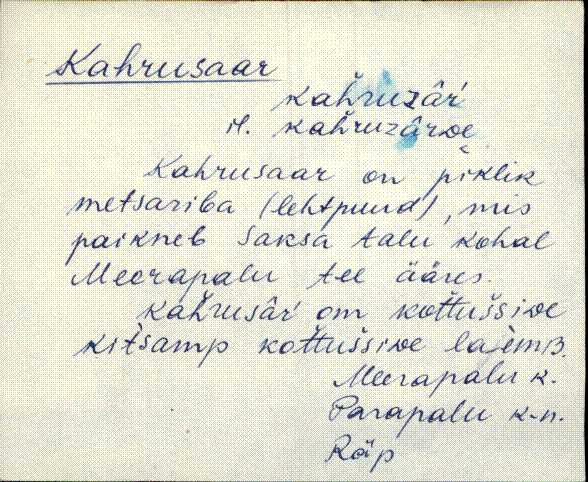 Kahrusaar
kaȟruzâŕ
il. kaȟruzârde
Kahrusaar on piklik
metsariba (lehtpuud), mis
paikneb Saksa talu kohal
Meerapalu tee ääres.
kaȟrusâŕ om kottušside
kitsamp kottušside laèmB.
Meerapalu k.
Parapalu k-n.
Räp